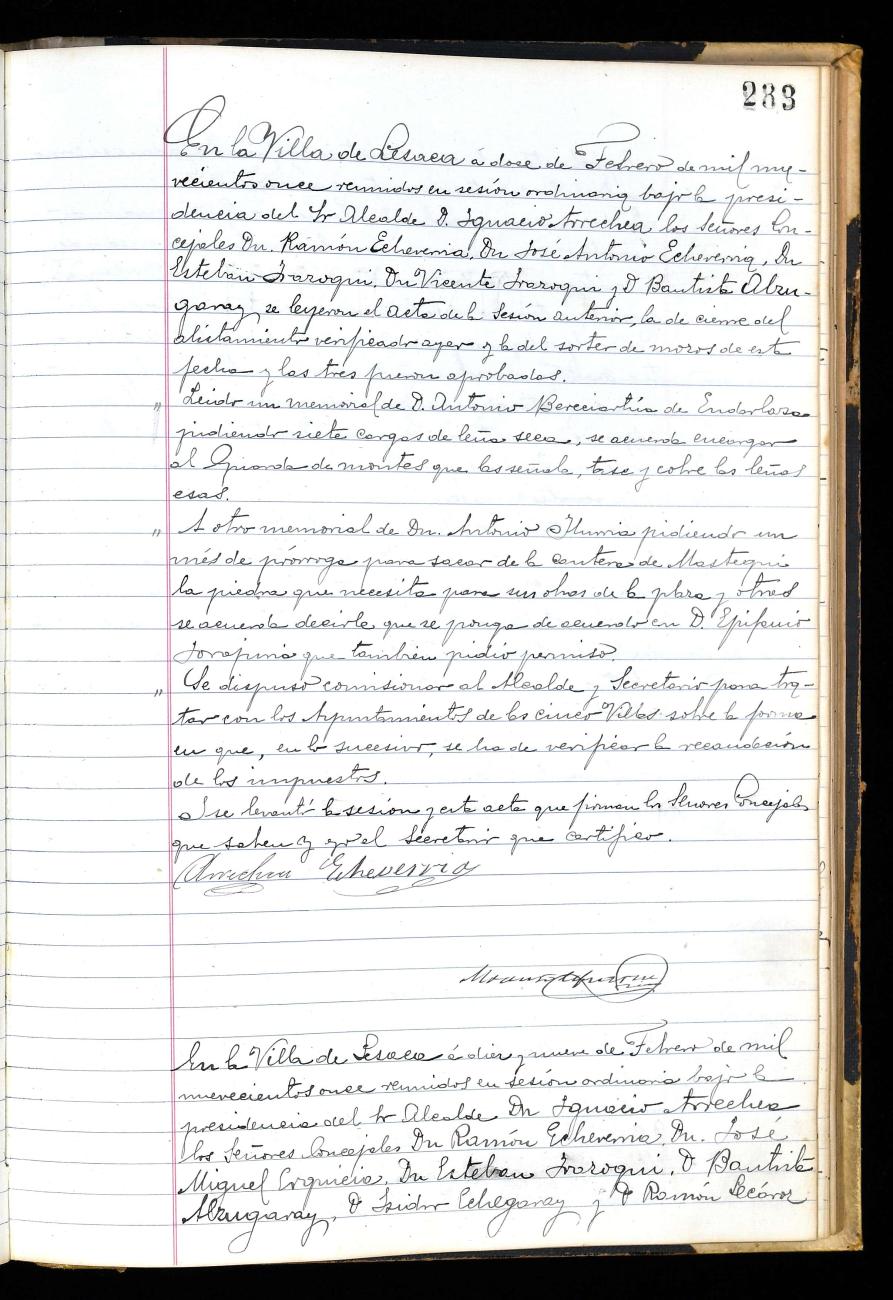 283
En la Villa de Lesaca á doce de Febrero de mil nue-
vecientos once reunidos en sesión ordinaria bajo la presi-
dencia del Sr Alcalde D. Ignacio Arrechea los Señores Con-
cejales Dn. Ramón Echeverria, Dn José Antonio Echeverria, Dn
Esteban Irazoqui, Dn Vicente Irazoqui y D Bautista Alzu-
garay se leyeron el acta de la sesión anterior, la de cierre del
alistamiento verificado ayer y la del sorteo de mozos de esta
fecha y las tres fueron aprobadas.
" Leido un memorial de D. Antonio Bereciartúa de Endarlaza
pidiendo siete cargas de leña seca, se acuerda encargar
al Guarda de montes que las señale, tase y cobre las leñas
esas.
" A otro memorial de Dn. Antonio pidiendo un
més de prórroga para sacar de la cantera de Mastegui
la piedra que necesita para sus obras de la plaza y otras
se acuerda decirle que se ponga de acuerdo con D. Epifanio
que también pidió permiso.
" Se dispuso comisionar al Alcalde y Secretario para tra-
tar con los Ayuntamientos de las cinco Villas sobre la forma
en que, en lo sucesivo, se ha de verificar la recaudación
de los impuestos.
I se levantó la sesión y esta acta que firman los Señores Concejales
que saben y yo el Secretario que certifico.
Arrechea Echeverria
En la Villa de Lesaca á diez y nueve de Febrero de mil
nuevecientos once reunidos en sesión ordinaria bajo la
presidencia del Sr Alcalde Dn Ignacio Arrechea
los Señores Concejales Dn Ramón Echeverria, Dn. José
Miguel Erquicia, Dn Esteban Irazoqui, D Bautista
Alzugaray, D Isidro Echegaray y D Ramón Secároz